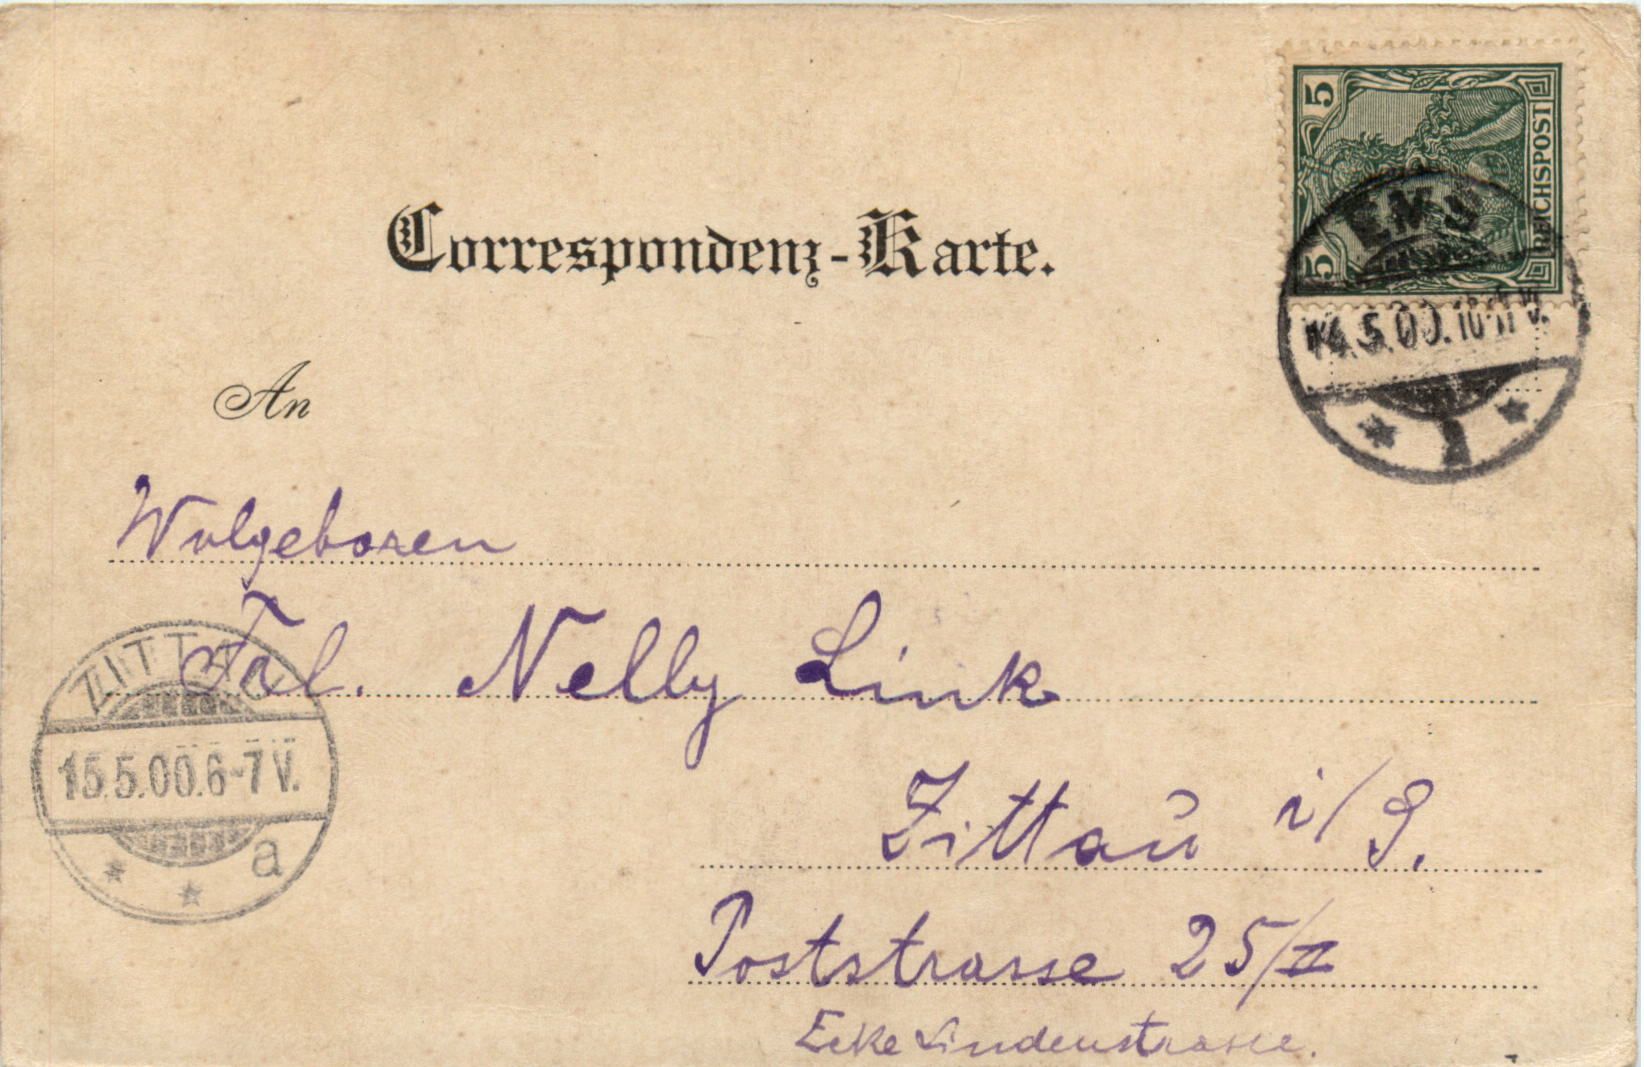 5 REICHSPOST 5
EMS
14.5.00.10-11 V.
Correspondenz-Karte.
An
Wolgeboren
Frl. Nelly Link
ZITTAU
15.5.00.6-7 V.
a
Zittau i/S.
Poststrasse 25/II
Ecke Lindenstrasse.